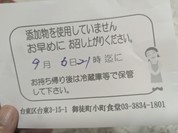 添加物を使用していません
お早めに お召し上がりください。
9月6日21時迄に
お持ち帰り後は冷蔵庫等で保管
して下さい。
台東区台東3-15-1 御徒町小町食堂03-3834-1801